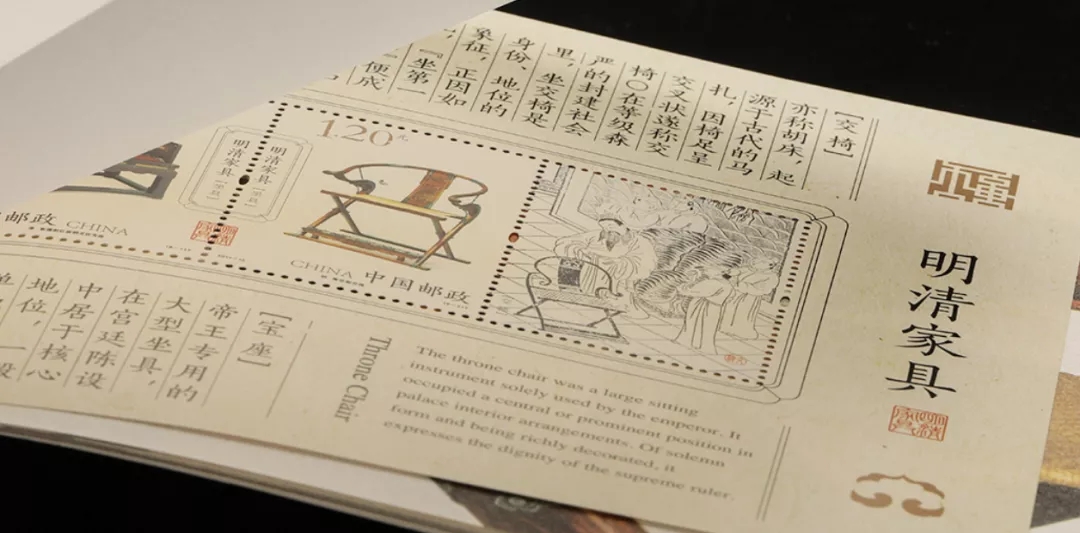 【交椅】
亦称胡床，起
源于古代的马
札，因椅足呈
交叉状遂称交
椅。在等级森
严的封建社会
里，坐交椅是
身份、地位的
象征，正因如
『坐第一
便成
明清家具
1.20元
明清家具
明清家具
CHINA 中国邮政
邮政 CHINA
【宝座】
帝王专用的
大型坐具，
在宫廷陈设
中居于核心
地位，一
Throne Chair
The throne chair was a large sitting
instrument solely used by the emperor. It
occupied a central or prominent position in
palace interior arrangements. Of solemn
form and being richly decorated, it
expresses the dignity of the supreme ruler.